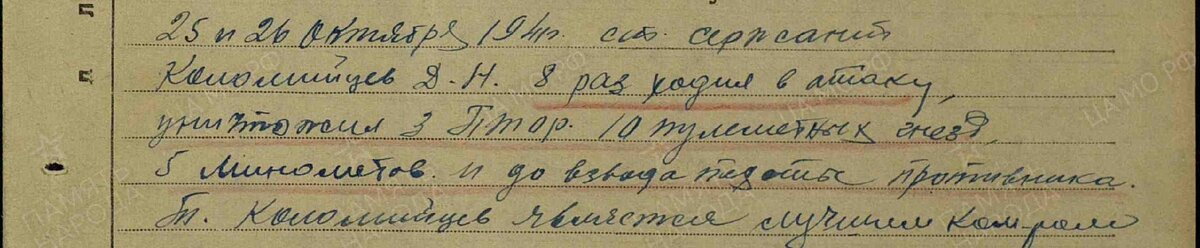 25 и 26 октября 194г. ст. сержант
Коломийцев Д.Н. 8 раз ходил в атаку,
уничтожил 3 Птор. 10 пулеметных гнезд,
5 минометов. и до взвода пехоты противника.
Т. Коломийцев является лучшим